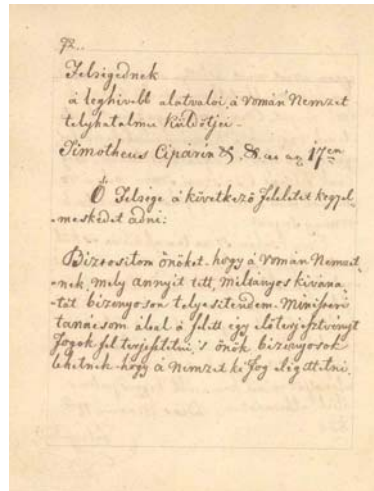 Felségednek
a leghivebb alatvalói, á Román Nemzet
telyhatalmu Küldöttjei
Timotheus Cipáriu &, &. az 17en
Ő Felsége á következö feleletet kegyel-
-meskedet adni:
Bizzositom önöket, hogy á Román Nemzet-
-nek, mely annyit tett, miltányos kivána-
-tát bizonyoson telyesitendem. Ministeri
tanácsom által á felett egy elöterjesztvényt
fogok fel terjesztetni, 's önök bizonyosok
lehetnek hogy á Nemzet ki fog elégittetni.